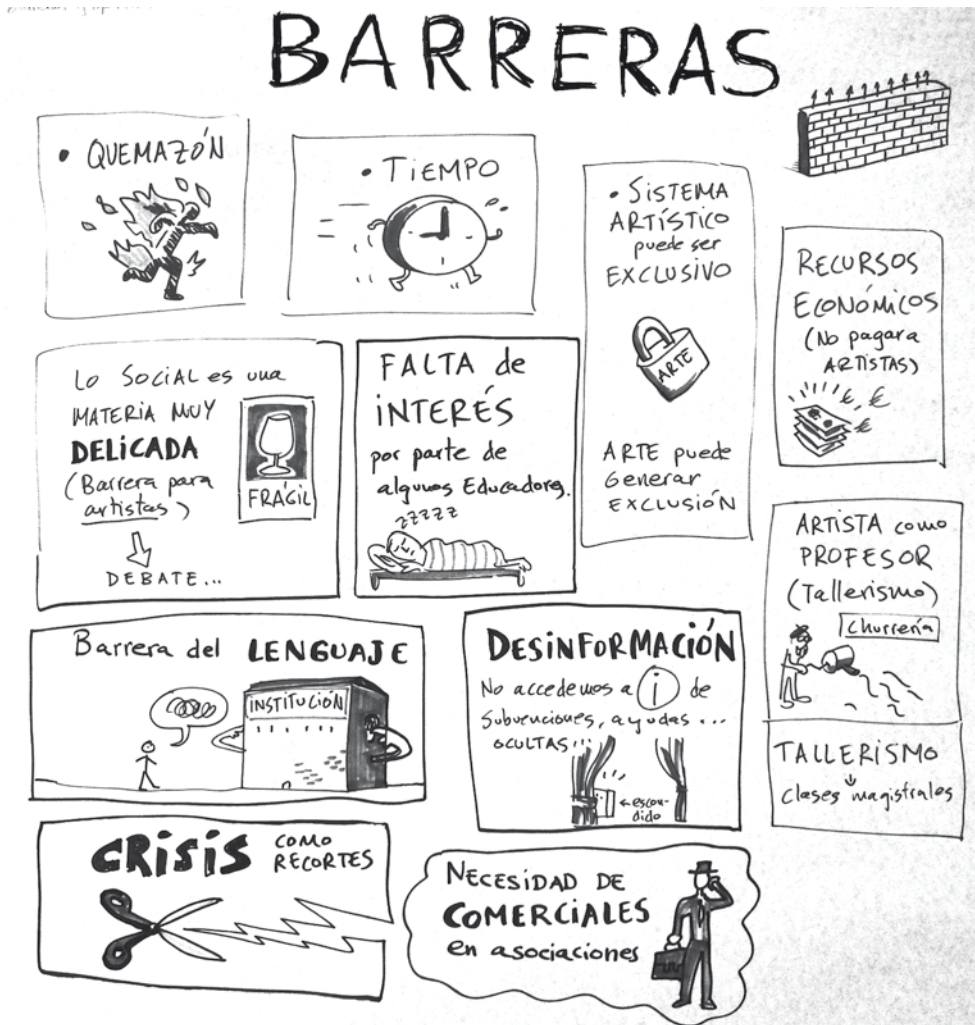 BARRERAS
• QUEMAZÓN
• TIEMPO
• SISTEMA
ARTÍSTICO
puede ser
EXCLUSIVO
ARTE
ARTE puede
Generar
EXCLUSIÓN
RECURSOS
ECONÓMICOS
(No pagar a
ARTISTAS)
€ €
€
Lo SOCIAL es una
MATERIA MUY
DELICADA
(Barrera para
artistas)
DEBATE...
FRÁGIL
FALTA de
INTERÉS
por parte de
algunos Educadores.
zzzzz
ARTISTA como
PROFESOR
(Tallerismo)
Churrería
TALLERISMO
Clases magistrales
Barrera del LENGUAJE
INSTITUCIÓN
DESINFORMACIÓN
No accedemos a i de
Subvenciones, ayudas ...
OCULTAS...
←escon-
dido
CRISIS COMO
RECORTES
NECESIDAD DE
COMERCIALES
en asociaciones